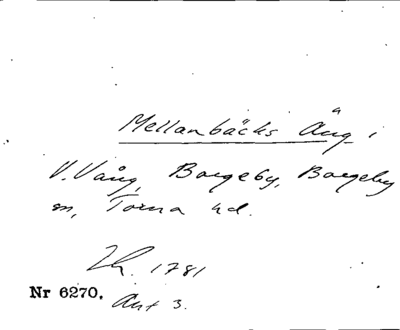 Mellanbäcks Äng i
V. Vång, Borgeby, Borgeby
sn, Torna hd.
1781
Nr 6270. Akt 3.